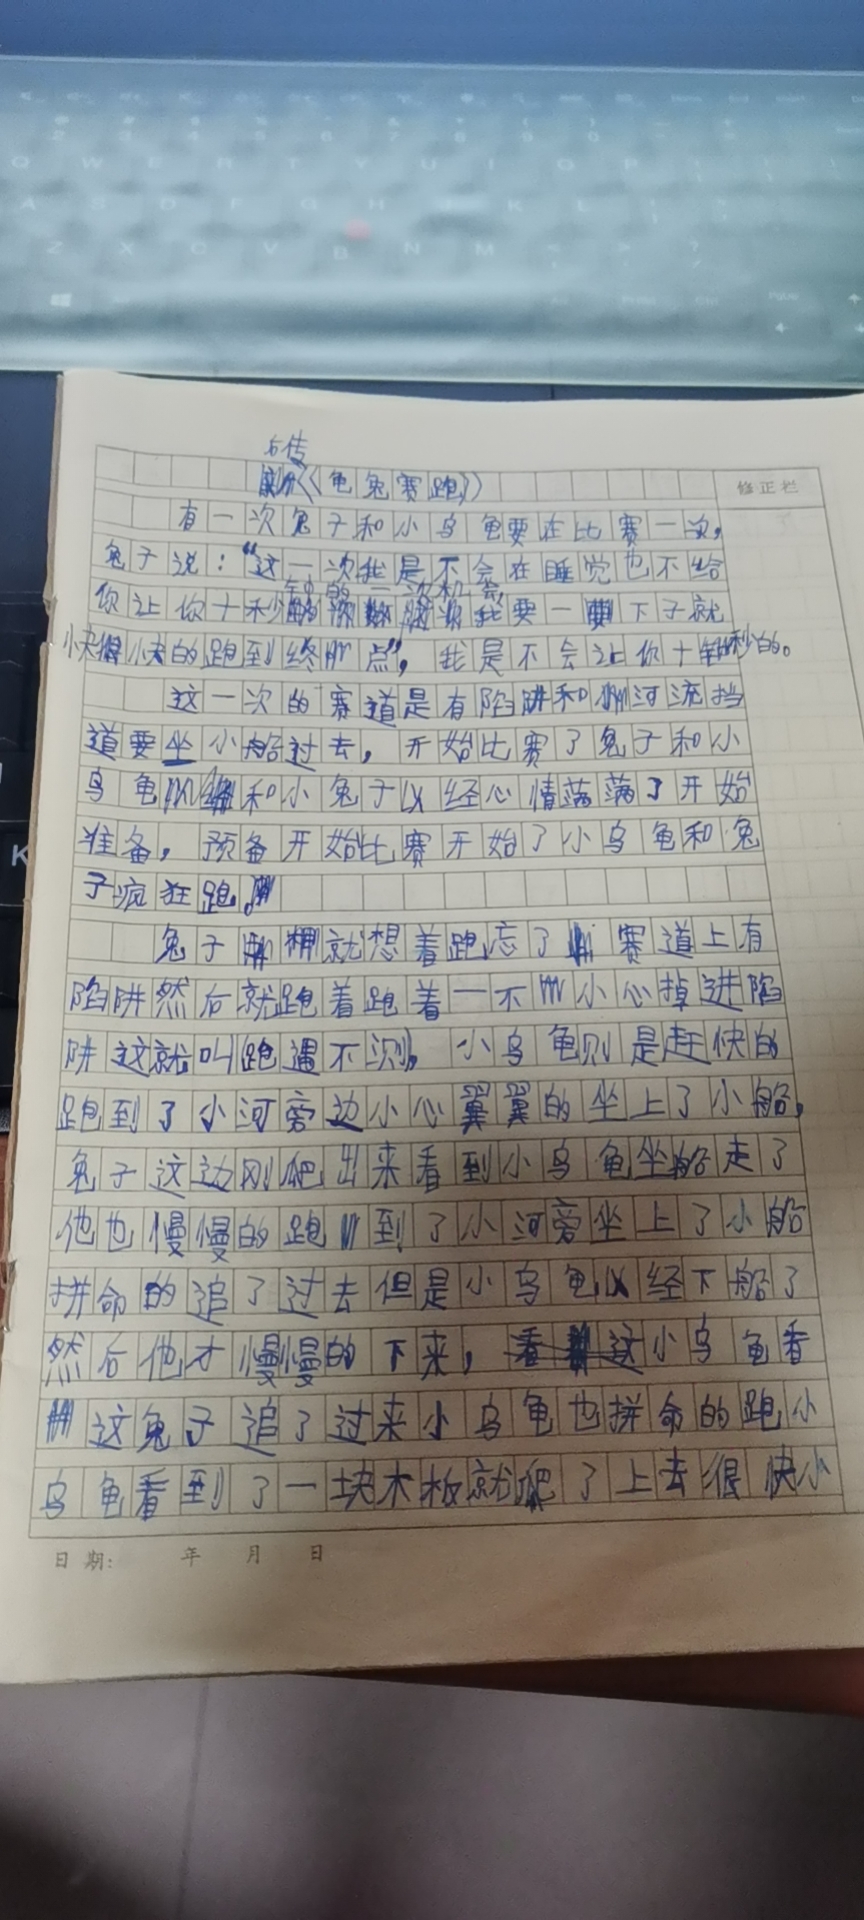 《龟兔赛跑》
修正栏
有一次兔子和小乌龟要在比赛一次，
兔子说："这一次我是不会在睡觉也不给
钟的一次机会，
你让你十秒我要一下子就
快的跑到终点"，我是不会让你十秒的。
这一次的赛道是有陷阱和河流挡
道要坐小船过去，开始比赛了兔子和小
乌龟和小兔子以经心情荡荡了开始
准备，预备开始比赛开始了小乌龟和兔
子疯狂跑。
兔子就想着跑忘了赛道上有
陷阱然后就跑着跑着一不小心掉进陷
阱这就叫跑遇不测。小乌龟则是赶快的
跑到了小河旁边小心翼翼的坐上了小船，
兔子这边刚爬出来看到小乌龟坐船走了
他也慢慢的跑到了小河旁坐上了小船
拼命的追了过去但是小乌龟以经下船了
然后他才慢慢的下来，小乌龟看
这兔子追了过来小乌龟也拼命的跑小
乌龟看到了一块木板就爬了上去很快小
日期： 年 月 日